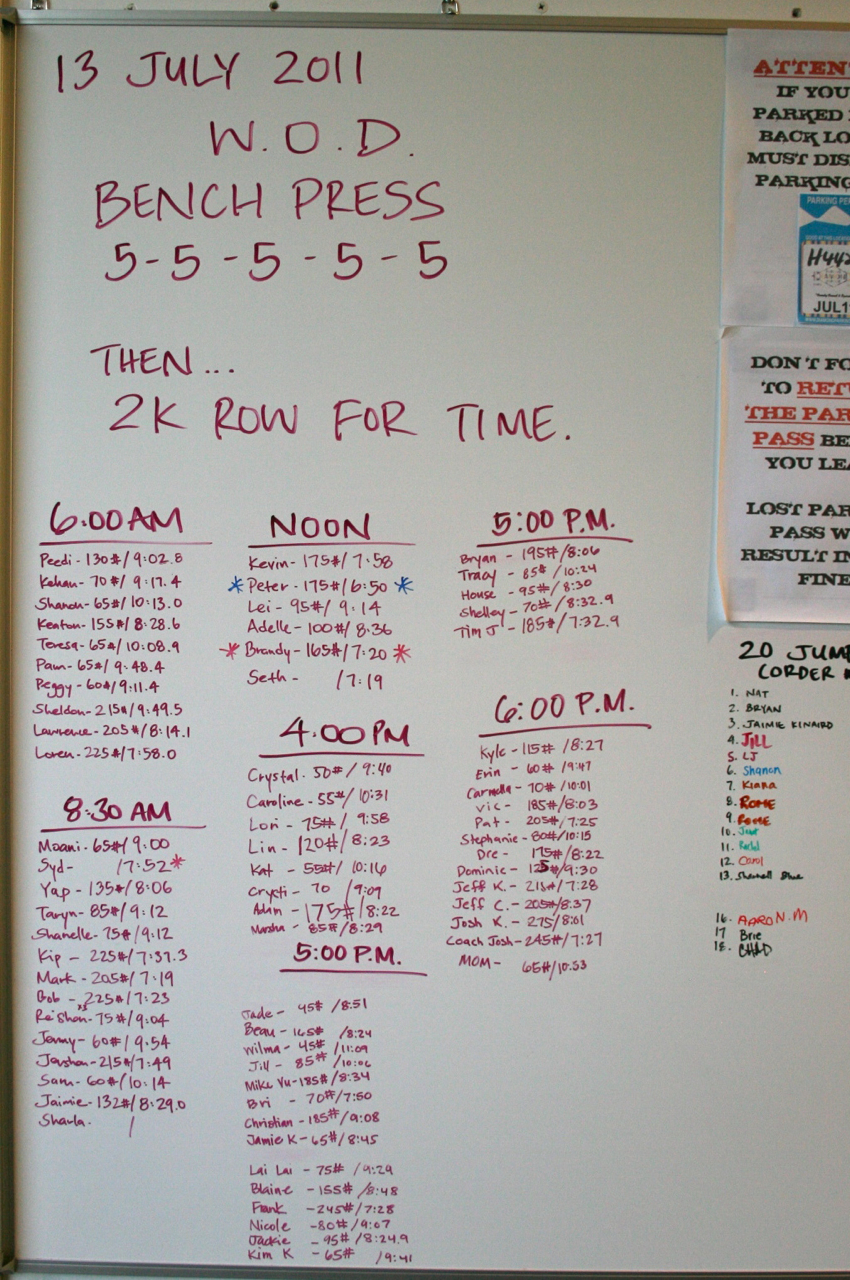 13 JULY 2011
W.O.D.
BENCH PRESS
5-5-5-5-5
THEN...
2K ROW FOR TIME.
6:00 AM
Peedi - 130#/9:02.8
70#/9:17.4
Sharon - 65#/10:13.0
Kenton - 155#/8:28.6
Teresa - 65#/10:08.9
Pam - 65#/9:48.4
Peggy - 60#/9:11.4
Sheldon - 215#/9:49.5
Lawrence - 205#/8:14.1
Loren - 225#/7:58.0
8:30 AM
Moani - 65#/9:00
Syd - /7:52*
Yap - 135#/8:06
Taryn - 85#/9:12
Shanelle - 75#/9:12
Kip - 225#/7:37.3
Mark - 205#/7:19
Bob - 225#/7:23
Re'Shon - 75#/9:04
Jenny - 60#/9:54
215#/7:49
Sam - 60#/10:14
Jaimie - 132#/8:29.0
Sharla. /
NOON
Kevin - 175#/7:58
* Peter - 175#/6:50 *
Lei - 95#/9:14
Adelle - 100#/8:36
* Brandy - 165#/7:20 *
Seth - /7:19
4:00 PM
Crystal - 50#/9:40
Caroline - 55#/10:31
Lori - 75#/9:58
Lin - 120#/8:23
Kat - 55#/10:16
70 /9:09
Adam - 175#/8:22
Marsha - 85#/8:29
5:00 P.M.
Jade - 45#/8:51
Beau - 165#/8:24
Wilma - 45#/11:09
Jill - 85#/10:06
Mike Vu - 185#/8:34
Bri - 70#/7:50
Christian - 185#/9:08
Jamie K - 65#/8:45
Lai Lai - 75#/9:29
Blaine - 155#/8:48
Frank - 245#/7:28
Nicole - 80#/9:07
Jackie - 95#/8:24.9
Kim K - 65#/9:41
5:00 P.M.
Bryan - 195#/8:06
Tracy - 85#/10:24
House - 95#/8:30
Shelley - 70#/8:32.9
Tim J - 185#/7:32.9
6:00 P.M.
Kyle - 115#/8:27
Erin - 60#/9:47
Carmella - 70#/10:01
Vic - 185#/8:03
Pat - 205#/7:25
Stephanie - 80#/10:15
Dre - 175#/8:22
Dominic - 125#/9:30
Jeff K. - 215#/7:28
Jeff C. - 205#/8:37
Josh K. - 275/8:01
Coach Josh - 245#/7:27
MOM - 65#/10:53
ATTEN
IF YOU
PARKED
BACK LO
MUST DIS
PARKING
PARKING PE
H442
JUL1
DON'T FO
TO RET
THE PAR
PASS BE
YOU LEA
LOST PAR
PASS W
RESULT IN
FINE
20 JUM
(ORDER
1. NAT
2. BRYAN
3. JAIMIE KINAIRD
4. JILL
5. LJ
6. Shanon
7. Kiana
8. ROME
9. ROME
10.
11. Rachel
12. Carol
13.
16. AARON.M
17 Brie
18. CHAD